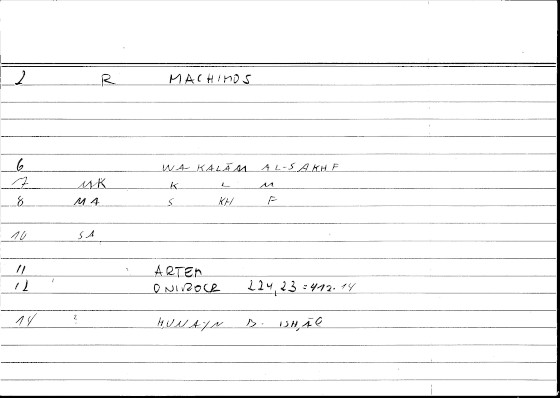 2 R MACHIMOS
6 WA-KALĀM AL-SAKHF
7 MK K L M
8 MA S KH F
10 SA
11 ARTEM
12 ONIROCR 224,23 = 412.14
14 ? HUNAYN B. ISḤĀQ